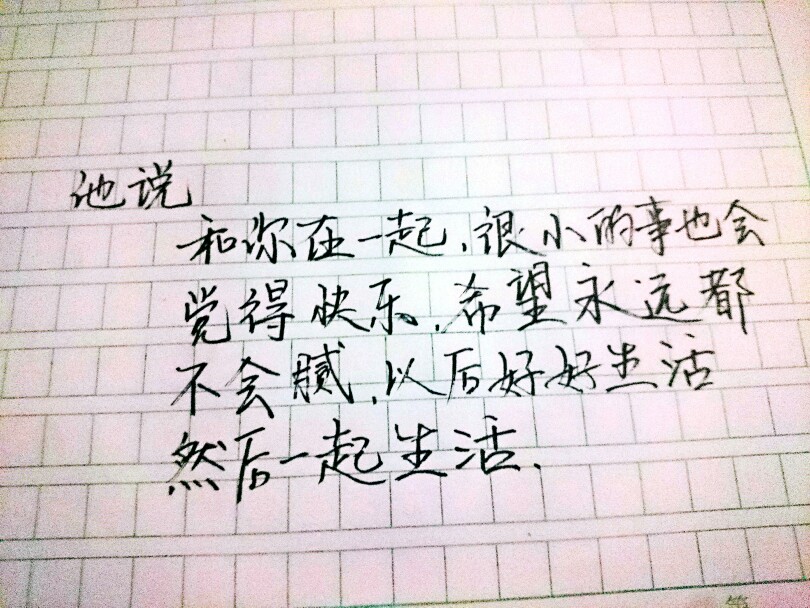 他说
和你在一起，很小的事也会
觉得快乐，希望永远都
不会腻，以后好好生活
然后一起生活。